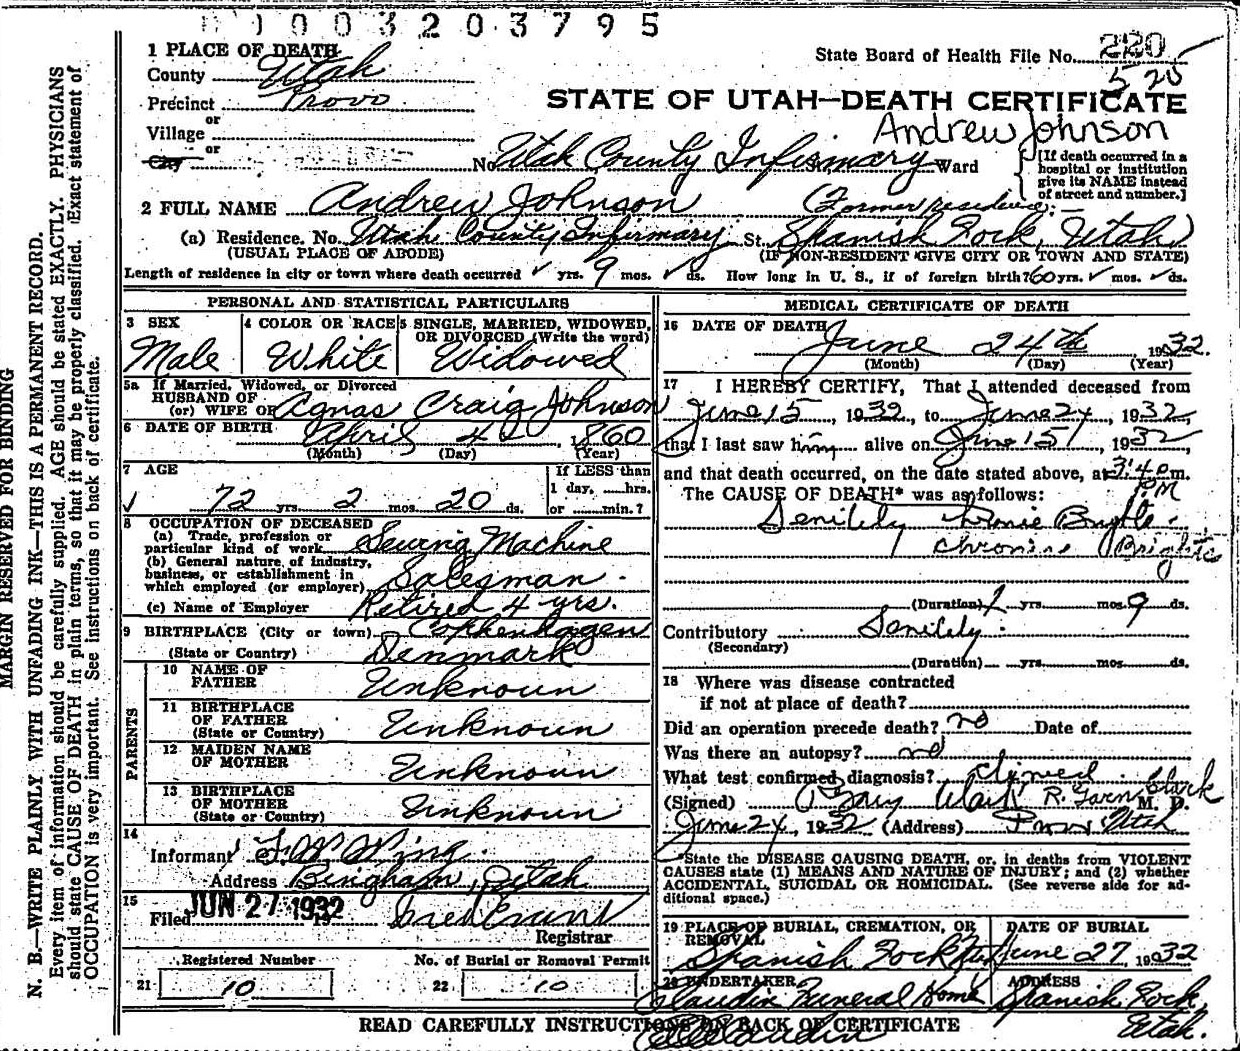 0 0 0 3 2 0 3 7 9 5
MARGIN RESERVED FOR BINDING
N. B.—WRITE PLAINLY WITH UNFADING INK—THIS IS A PERMANENT RECORD.
Every item of information should be carefully supplied. AGE should be stated EXACTLY. PHYSICIANS
should state CAUSE OF DEATH in plain terms, so that it may be properly classified. Exact statement of
OCCUPATION is very important. See instructions on back of certificate.
1 PLACE OF DEATH
County Utah
Precinct Provo
or
Village
or
City
State Board of Health File No. 220
5 25
STATE OF UTAH—DEATH CERTIFICATE
Andrew Johnson
No. Utah County Infirmary St. Ward
[If death occurred in a
hospital or institution
give its NAME instead
of street and number.]
2 FULL NAME Andrew Johnson (Former residence:—
(a) Residence. No. Utah County Infirmary St. Spanish Fork, Utah)
(USUAL PLACE OF ABODE) (IF NON-RESIDENT GIVE CITY OR TOWN AND STATE)
Length of residence in city or town where death occurred ✓ yrs. 9 mos. ✓ ds. How long in U. S., if of foreign birth? 60 yrs. ✓ mos. ✓ ds.
PERSONAL AND STATISTICAL PARTICULARS
3 SEX
Male
4 COLOR OR RACE
White
5 SINGLE, MARRIED, WIDOWED,
OR DIVORCED (Write the word)
Widowed
5a If Married, Widowed, or Divorced
HUSBAND OF
(or) WIFE OF Agnas Craig Johnson
6 DATE OF BIRTH April 4 1860
(Month) (Day) (Year)
7 AGE
✓ 72 yrs. 2 mos. 20 ds.
If LESS than
1 day, ......hrs.
or ......min.?
8 OCCUPATION OF DECEASED
(a) Trade, profession or
particular kind of work Sewing Machine
(b) General nature of industry,
business, or establishment in
which employed (or employer) Salesman.
(c) Name of Employer Retired 4 yrs.
9 BIRTHPLACE (City or town) Cophenhagen
(State or Country) Denmark
PARENTS
10 NAME OF
FATHER Unknoun
11 BIRTHPLACE
OF FATHER
(State or Country) Unknoun
12 MAIDEN NAME
OF MOTHER Unknoun
13 BIRTHPLACE
OF MOTHER
(State or Country) Unknoun
14
Informant
Address Bingham, Utah
15
Filed JUN 27 1932
Registrar
Registered Number No. of Burial or Removal Permit
21 10 22 10
MEDICAL CERTIFICATE OF DEATH
16 DATE OF DEATH June 24th 1932.
(Month) (Day) (Year)
17 I HEREBY CERTIFY, That I attended deceased from
June 15, 1932, to June 24, 1932,
that I last saw him alive on June 15, 1932
and that death occurred, on the date stated above, at 3:40 p m.
PM
The CAUSE OF DEATH* was as follows:
Senility
chronic Brights
(Duration) yrs. mos. 9 ds.
Contributory Senility.
(Secondary)
(Duration) yrs. mos. ds.
18 Where was disease contracted
if not at place of death?
Did an operation precede death? no Date of
Was there an autopsy? no
What test confirmed diagnosis?
(Signed) R. Garn Clark M. D.
June 24, 1932 (Address) Provo Utah
*State the DISEASE CAUSING DEATH, or, in deaths from VIOLENT
CAUSES state (1) MEANS AND NATURE OF INJURY; and (2) whether
ACCIDENTAL, SUICIDAL OR HOMICIDAL. (See reverse side for ad-
ditional space.)
19 PLACE OF BURIAL, CREMATION, OR
REMOVAL
Spanish Fork Utah
DATE OF BURIAL
June 27, 1932
20 UNDERTAKER
Claudin Funeral Home
ADDRESS
Spanish Fork,
Utah.
READ CAREFULLY INSTRUCTIONS ON BACK OF CERTIFICATE